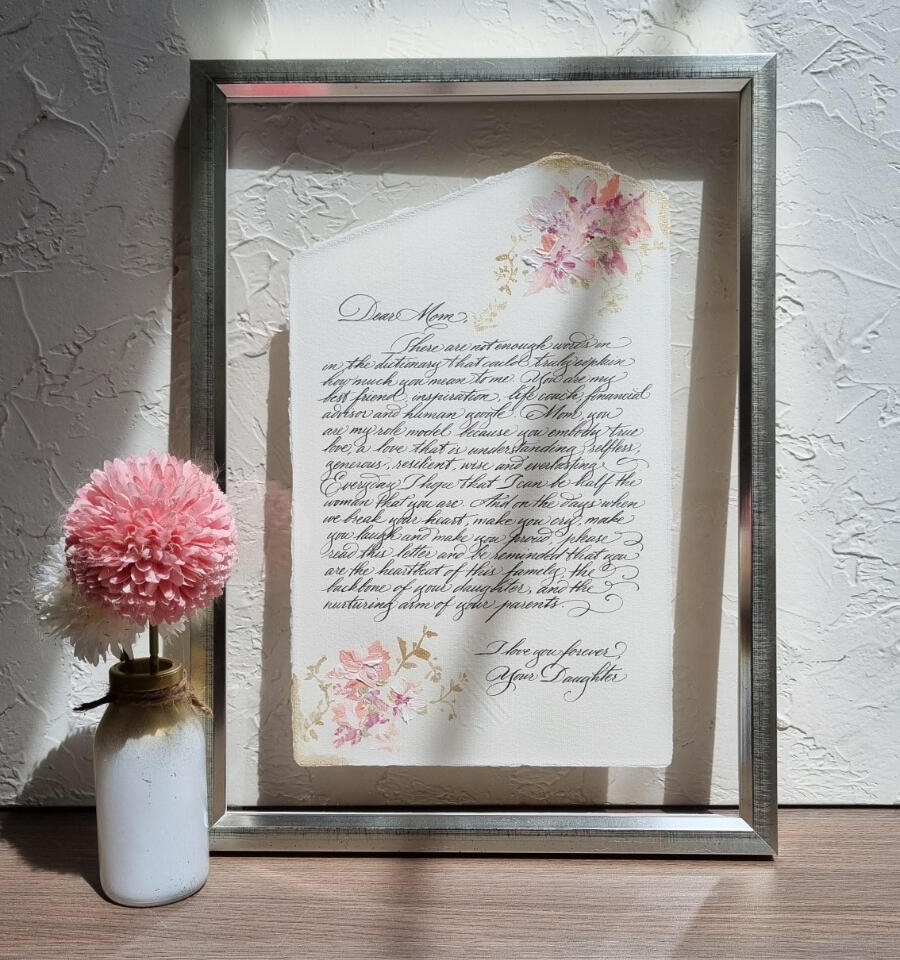 Dear Mom,
There are not enough words in
in the dictionary that could truly explain
how much you mean to me. You are my
best friend, inspiration, life coach, financial
advisor and human google. Mom, you
are my role model because you embody true
love, a love that is understanding, selfless,
generous, resilient, wise and everlasting.
Everyday I hope that I can be half the
woman that you are. And on the days when
we break your heart, make you cry, make
you laugh and make you proud, please
read this letter and be reminded that you
are the heartbeat of this family, the
backbone of your daughter, and the
nurturing arm of your parents.
I love you forever,
Your Daughter